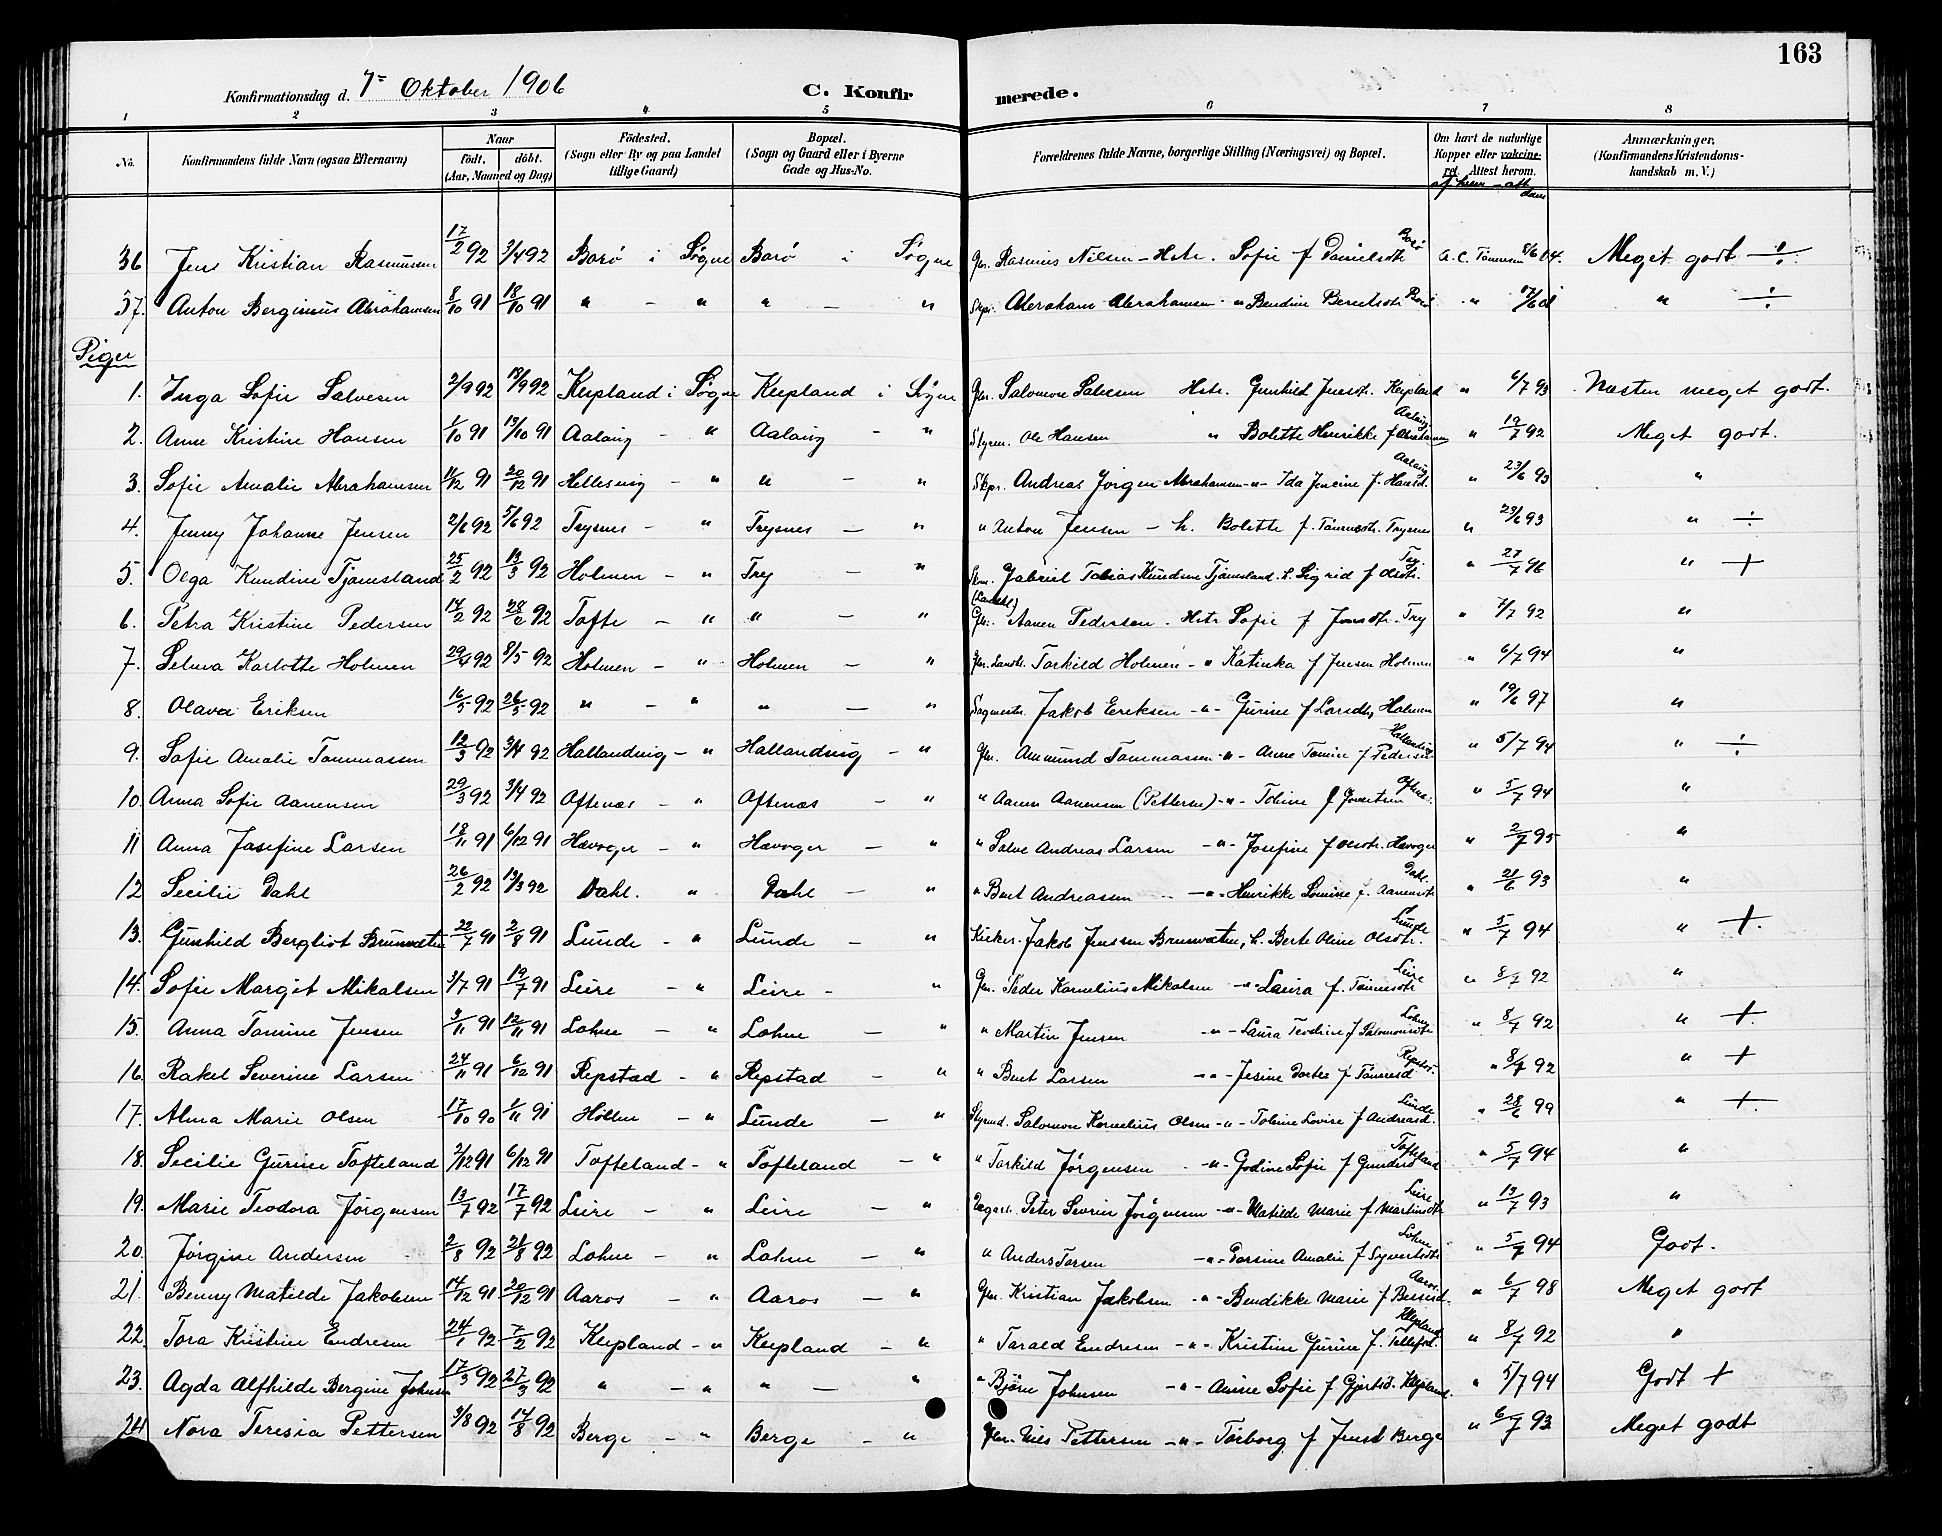 163
Konfirmationsdag d. 7de Oktober 1906 C. Konfirmerede.
1 2 3 4 5 6 7 8
No. Konfirmandens fulde Navn (ogsaa Efternavn) Naar födt. döbt. (Aar, Maaned og Dag) Födested. (Sogn eller By og paa Landet tillige Gaard) Bopæl. (Sogn og Gaard eller i Byerne Gade og Hus-No. Forældrenes fulde Navne, borgerlige Stilling (Næringsvei) og Bopæl. Om havt de naturlige Kopper eller vakcineret. Attest herom. Anmærkninger. (Konfirmandens Kristendomskundskab m. V.)
36 Jens Kristian Rasmussen 17/2 92 3/4 92 Borø i Søgne Borø i Søgne Gbr. Rasmus Nilsen - Hstr. Sofie f Danielsdtr Borø A. C. Tønnesen 8/6 04. Meget godt ÷
37. Anton Berginius Abrahamsen 8/10 91 18/10 91 " - " " - " Skpr. Abraham Abrahamsen - " Bendine Berntsdtr Borø " " ÷
Piger
1. Inga Sofie Salvesen 2/9 92 18/9 92 Klepland i Søgne Klepland i Søgne Gbr. Salomon Salvesen Hstr. Gunhild Jensdtr. Klepland " 6/7 93 Næsten meget godt.
2. Anne Kristine Hansen 1/10 91 19/10 91 Aalavig - " Aalavig - " Styrm. Ole Hansen " Bolette Henrikke f Abrahamsen Aalavig " 19/7 92 Meget godt.
3. Sofie Amalie Abrahamsen 11/12 91 20/12 91 Hellesvig - " " - " Skpr. Andreas Jørgen Abrahamsen - " - Ida Jensine f. Hansd. Aalavig " 23/6 93 "
4. Jenny Johanne Jensen 2/6 92 5/6 92 Trysnes - " Trysnes - " " Anton Jensen - h. Bolette f. Tønnesdtr. Trysnes " 23/6 93 " ÷
5. Olga Kundine Tjomsland 25/2 92 13/3 92 Holmen - " Try - " Gabriel Tobias Knudsen Tjomsland. h. Sigrid f Olsdtr. Try. " 27/7 96 " +
6. Petra Kristine Pedersen 14/2 92 28/2 92 Tofte - " " - " Gbr. Aanen Pedersen - Hstr Sofie f Jonsdtr. Try " 7/7 92 "
7. Selma Karlotte Holmen 29/4 92 8/5 92 Holmen - " Holmen - " Torkild Holmen - " Katinka f Jensen Holmen " 6/7 94 "
8. Olava Eriksen 16/5 92 26/5 92 " - " " - " Sagmestr. Jakob Eriksen - " - Gurine f Larsdtr, Holmen " 19/6 97 "
9. Sofie Amalie Tommassen 12/3 92 3/4 92 Hallandvig - " Hallandvig - " Gbr. Ammund Tommassen - " - Anne Tomine f Pedersd Hallandvig " 5/7 94 " ÷
10. Anna Sofie Aanensen 29/3 92 3/4 92 Oftenæs - " Oftenæs - " " Aanen Aanensen (Pettersen) - " - Toline f Oftenæs. " 5/7 94 "
11 Anna Josefine Larsen 18/11 91 6/12 91 Havoger - " Havoger - " " Salve Andreas Larsen - " - Josefine f Olsdtr. Havoger " 2/7 95 "
12 Secilie Dahl 26/2 92 13/3 92 Dahl. " Dahl - " " Bent Andreassen - " - Henrikke Lovise f. Aanensdtr Dahl. " 21/6 93 "
13. Gunhild Bergliot Brunvatne 22/7 91 2/8 91 Lunde - " Lunde - " Kirkes. Jakob Jenssen Brunvatne, h. Berte Oline Olsdtr. Lunde " 5/7 94 " +
14. Sofie Margit Mikalsen 3/7 91 19/7 91 Leire - " Leire - " Gbr. Peder Kornelius Mikalsen - " - Laura f. Tønnesdtr Leire " 8/7 92 "
15. Anna Tomine Jensen 3/11 91 12/11 91 Lohne - " Lohne - " " Martin Jensen - " - Laura Teodine f Salomonsdtr Lohne " 8/7 92 " +
16. Rakel Severine Larsen 24/11 91 6/12 91 Repstad - " Repstad - " " Bent Larsen - " - Jesine Dortea f Tønnesd Repstad. " 8/7 92 " +
17. Alma Marie Olsen 17/10 90 1/11 91 Höllen - " Lunde - " Styrmd. Salomon Kornelius Olsen - " - Toline Lovise f Andreasd. Lunde " 28/6 99 " +
18. Secilie Gurine Tofteland 2/12 91 6/12 91 Tofteland - " Tofteland - " " Torkild Jørgensen - " - Godine Sofie f Gundersd Tofteland " 5/7 94 "
19. Marie Teodora Jørgensen 13/7 92 17/7 92 Leire - " Leire - " Dagarb. Peter Severin Jørgensen - " - Matilde Marie f Martinsdtr Leire " 13/7 93 "
20. Jørgine Andersen 2/8 92 21/8 92 Lohne - " Lohne - " " Anders Torsen - " - Torsine Amalie f Syvertsdtr Lohne " 5/7 94 Godt.
21. Benny Matilde Jakobsen 14/12 91 20/12 91 Aaros - " Aaros - " Gbr. Kristian Jakobsen - " - Bendikke Marie f Bessesd. Aaros " 6/7 98 Meget godt
22. Tora Kristine Endresen 24/1 92 7/2 92 Klepland - " Klepland - " " Tarald Endresen - " - Kristine Gurine f. Tellefsd. Klepland " 8/7 92 "
23. Agda Alfhilde Bergine Johnsen 17/3 92 27/3 92 " - " " - " " Bjørn Johnsen - " - Anne Sofie f Gjertsd. Klepland. " 5/7 94 Godt +
24 Nora Teresia Pettersen 3/8 92 14/8 92 Berge - " Berge - " Gbr. Nils Pettersen - " - Torborg f Jensd Berge " 6/7 93 Meget godt